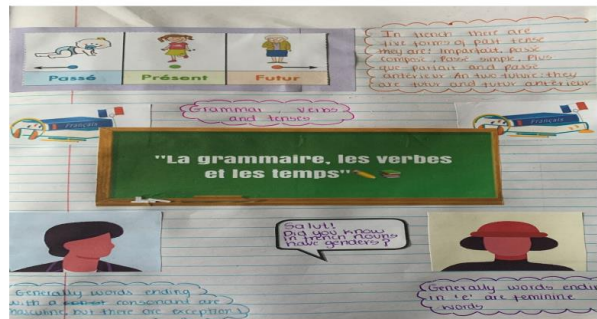 Passé
Présent
Futur
In french there are
five forms of past tense
they are: Imparfait, passé
composé, Passé simple, Plus
que parfait and passé
antérieur. An two future: they
are futur and futur antérieur
Grammar - verbs
and tenses
Français
Français
"La grammaire, les verbes
et les temps"
Salut!
Did you know
in french nouns
have genders?
Generally words ending
with a consonant are
masculine, but there are exceptions
Generally words endin
in 'e' are feminine
words